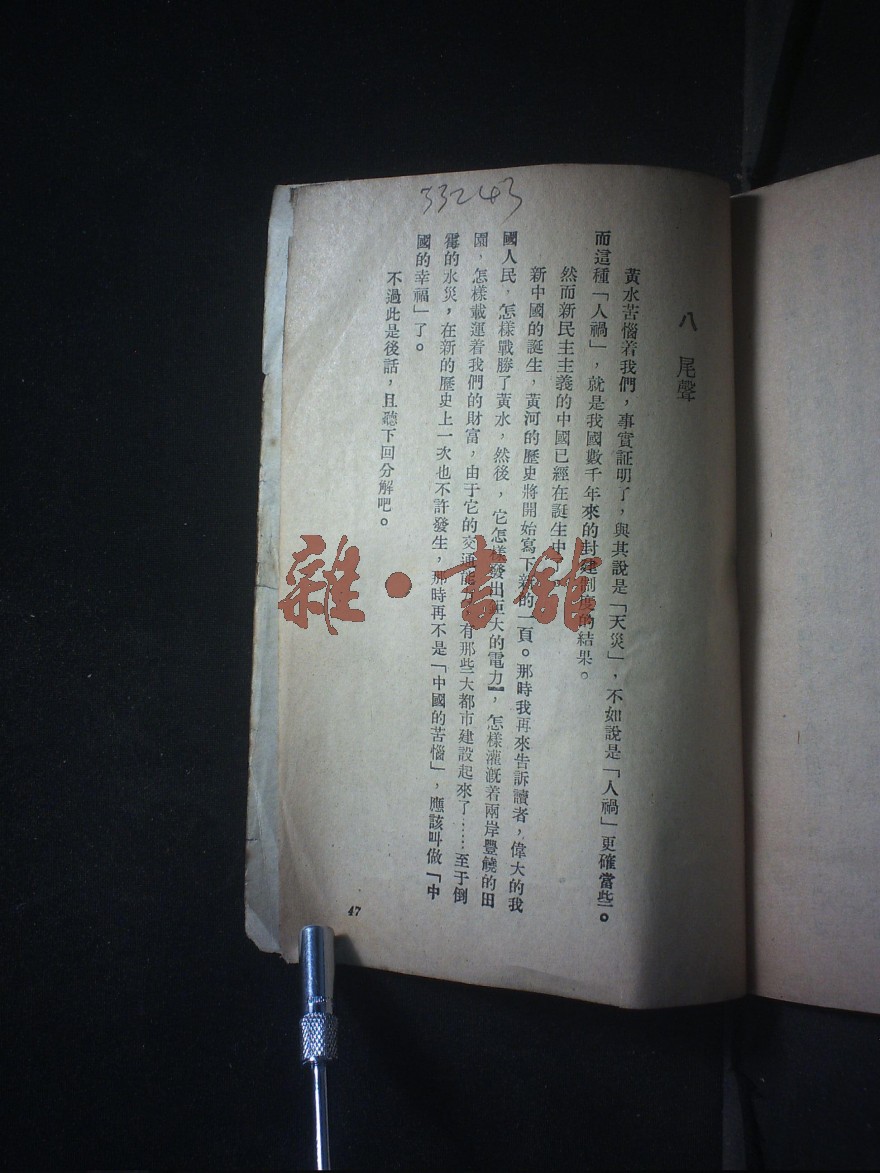 33243
八 尾聲
黃水苦惱着我們，事實証明了，與其說是「天災」，不如說是「人禍」更確當些。
而這種「人禍」，就是我國數千年來的封建制度的結果。
然而新民主主義的中國已經在誕生中
新中國的誕生，黃河的歷史將開始寫下新的一頁。那時我再來告訴讀者，偉大的我
國人民，怎樣戰勝了黃水，然後，它怎樣發出巨大的電力，怎樣灌漑着兩岸豐饒的田
園，怎樣載運着我們的財富，由于它的交通能 有那些大都市建設起來了……至于倒
霉的水災，在新的歷史上一次也不許發生，那時再不是「中國的苦惱」，應該叫做「中
國的幸福」了。
不過此是後話，且聽下回分解吧。
47
雜·書館